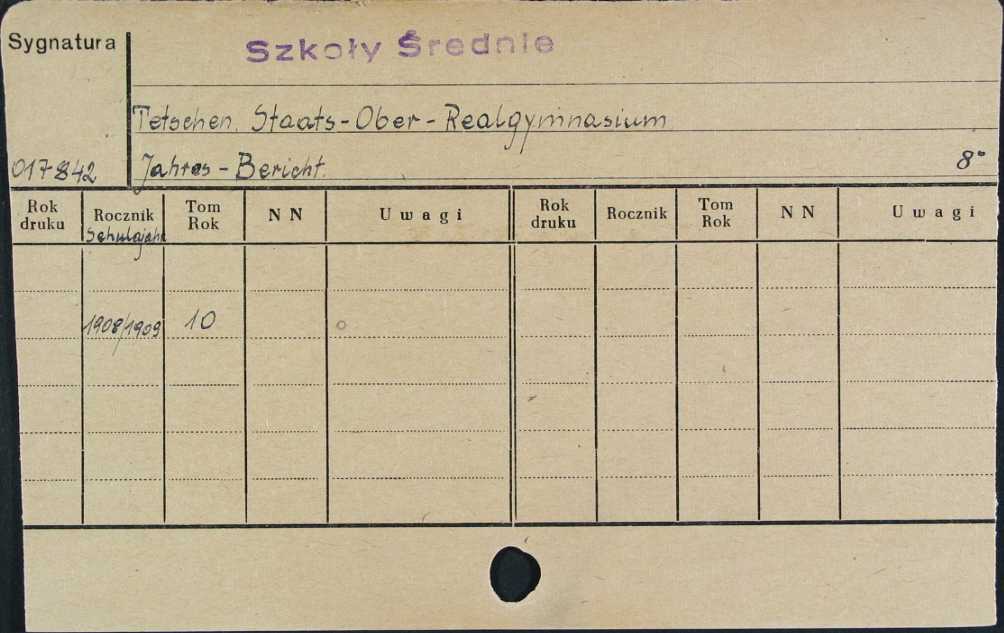 Sygnatura
Szkoły Średnie
Tetschen. Staats-Ober-Realgymnasium
017842 Jahres-Bericht. 8°
Rok druku Rocznik Tom Rok N N Uwagi Rok druku Rocznik Tom Rok N N Uwagi
Schulajahr
1908/1909 10